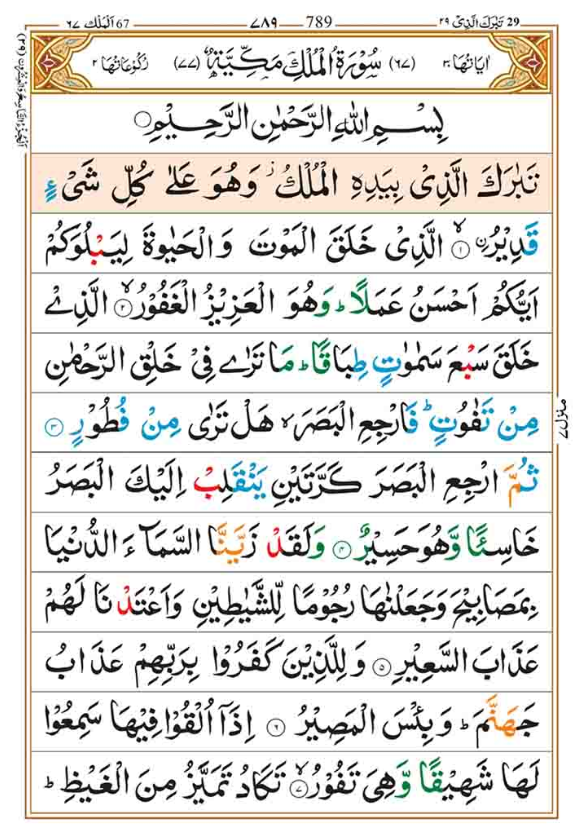 29 تَبٰرَكَ الَّذِیْ ٢٩ ٧٨٩ 789 67 اَلْمُلْك ٦٧
اٰیَاتُهَا ٣٠ (٦٧) سُوْرَةُ الْمُلْكِ مَكِّیَّةٌ (٧٧) رُكُوْعَاتُهَا ٢
بِسْمِ اللهِ الرَّحْمٰنِ الرَّحِیْمِ
تَبٰرَكَ الَّذِیْ بِیَدِهِ الْمُلْكُ ز وَهُوَ عَلٰی كُلِّ شَیْءٍ
قَدِیْرُۨ ۙ﴿١﴾ الَّذِیْ خَلَقَ الْمَوْتَ وَالْحَیٰوةَ لِیَبْلُوَكُمْ
اَیُّكُمْ اَحْسَنُ عَمَلًا ؕ وَهُوَ الْعَزِیْزُ الْغَفُوْرُ ۙ﴿٢﴾ الَّذِیْ
خَلَقَ سَبْعَ سَمٰوٰتٍ طِبَاقًا ؕ مَا تَرٰی فِیْ خَلْقِ الرَّحْمٰنِ
مِنْ تَفٰوُتٍ ؕ فَارْجِعِ الْبَصَرَ ۙ هَلْ تَرٰی مِنْ فُطُوْرٍ ﴿٣﴾
ثُمَّ ارْجِعِ الْبَصَرَ كَرَّتَیْنِ یَنْقَلِبْ اِلَیْكَ الْبَصَرُ
خَاسِئًا وَّهُوَ حَسِیْرٌ ﴿٤﴾ وَلَقَدْ زَیَّنَّا السَّمَآءَ الدُّنْیَا
بِمَصَابِیْحَ وَجَعَلْنٰهَا رُجُوْمًا لِّلشَّیٰطِیْنِ وَاَعْتَدْنَا لَهُمْ
عَذَابَ السَّعِیْرِ ﴿٥﴾ وَلِلَّذِیْنَ كَفَرُوْا بِرَبِّهِمْ عَذَابُ
جَهَنَّمَ ؕ وَبِئْسَ الْمَصِیْرُ ﴿٦﴾ اِذَاۤ اُلْقُوْا فِیْهَا سَمِعُوْا
لَهَا شَهِیْقًا وَّهِیَ تَفُوْرُ ۙ﴿٧﴾ تَكَادُ تَمَیَّزُ مِنَ الْغَیْظِ ؕ
منزل ٧